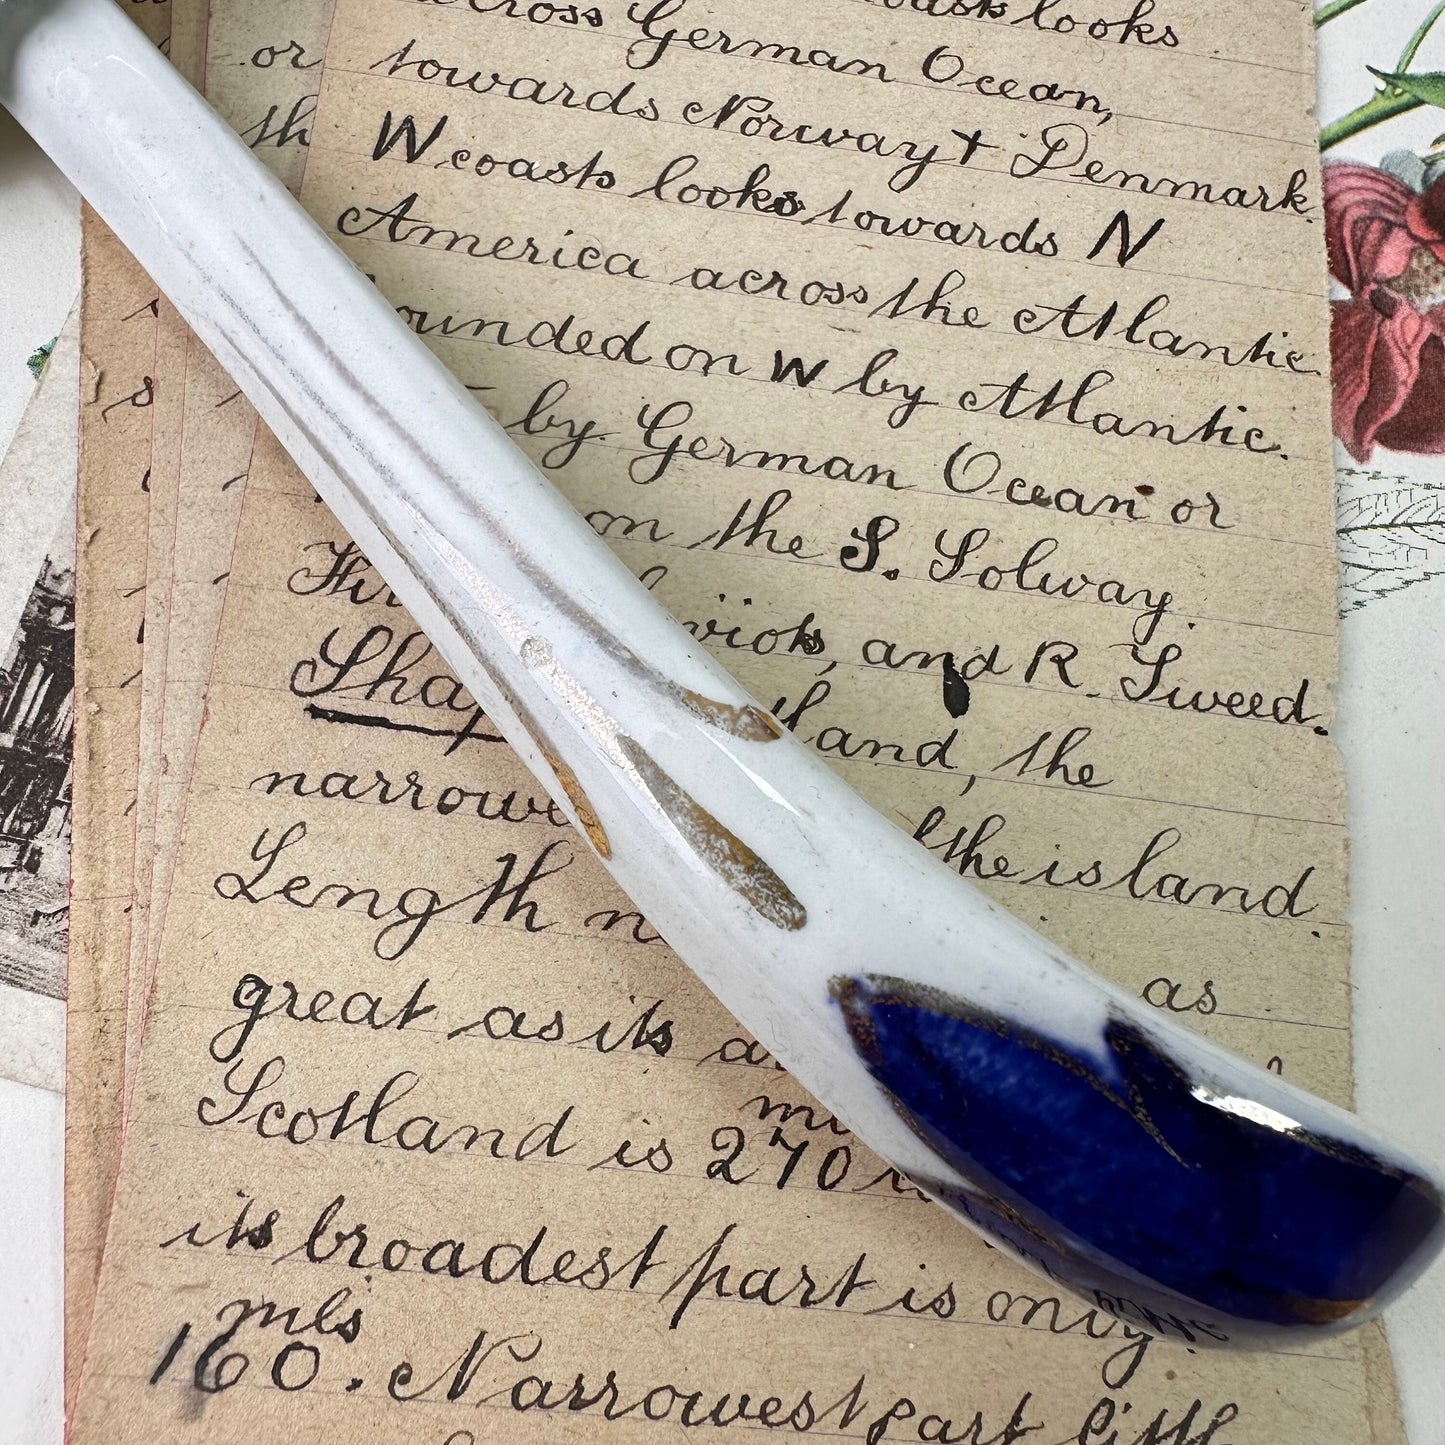 coasts looks
across German Ocean,
or towards Norway + Denmark.
th W coasts looks towards N
America across the Atlantic.
ounded on W by Atlantic.
s by German Ocean or
on the S. Solway
viots, and R. Tweed.
Shap tland, the
narrowe the island.
Length as
great as its
mi
Scotland is 270
its broadest part is only
mls
160. Narrowest part